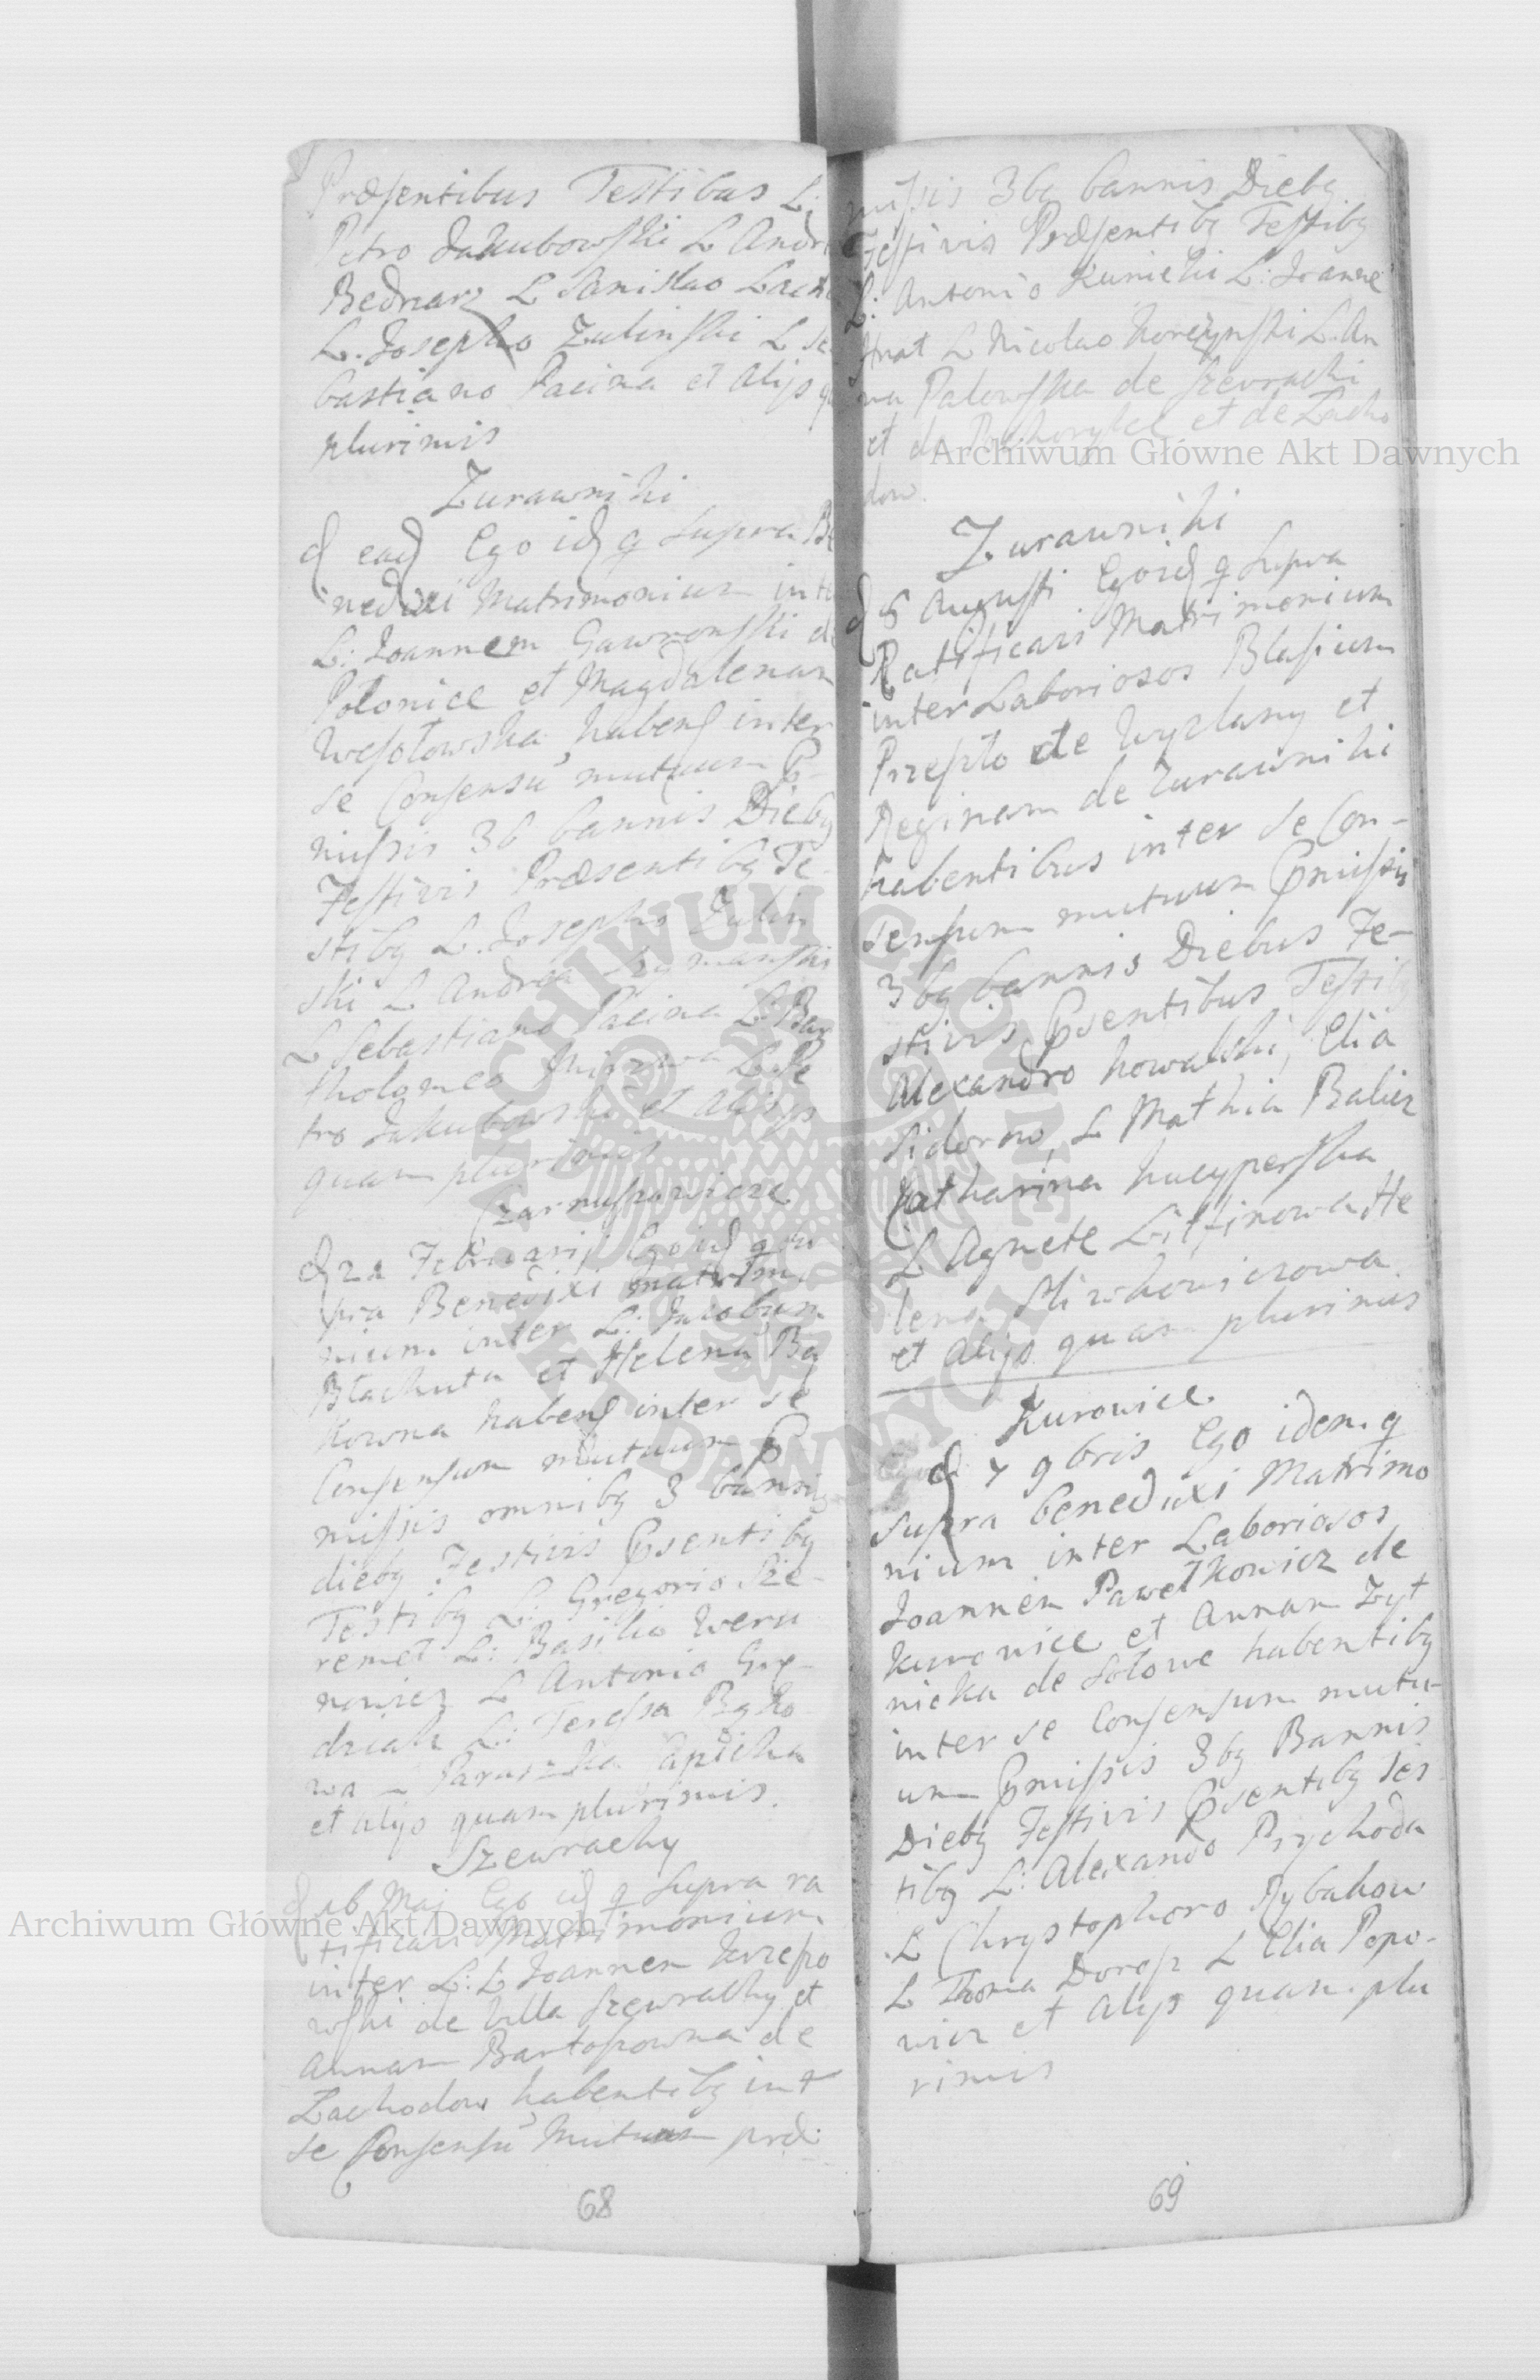 Præsentibus Testibus L:
Petro Jakubowski L Andr
Bednarz L Stanislao Lach
L. Josepho Zulinski L Se
bastiano Pacina et Alijs q
plurimis
Zurawniki
d ead Ego id q supra Be
nedixi Matrimonium int
L: Joannem Gawronski d
Polonice et Magdalenam
Wesołowska habens inter
se Consensu mutuum P
missis 3b bannis Dieby
Festivis Præsentiby Te
stiby L. Josepho Zulin
ski L Andrea Szymanski
L Sebastiano Pacina L: Bar
tholomeo Mirzwa L: Pe
tro Jakubowski et Alijs
quam plurimis
Czarnuszowicze
d 21 Februarij Ego id q su
pra Benedixi Matrimo
nium inter L: Jacobum
Blachuta et Helena By
kowna habens inter se
Consensum mutuum P
missis omniby 3 bannis
dieby Festivis Psentiby
Testiby L: Gregorio Sze
remet L: Basilio Weru
nowicz L Antonio Gry
dziak L: Teressa Byko
wa Paraszka
et alijs quam plurimis.
Szewrachy
d 16 Maj Ego id q Supra ra
tificavi Matrimonium
inter L: L Joannem Krzepo
wski de Villa Szewrachy et
Annam Bartosowna de
Lachodow habentiby int
se Consensu Mutuum præ
68
missis 3by bannis Dieby
Festivis Præsentiby Testiby
L: Antonio Kunicki L: Joanne
Hnat L Nicolao Korczynski L. An
na Palewska de Szewrachi
et de Podhorylce et de Lacho
dow.
Zurawniki
d 6 Augusti Ego id q Supra
Ratificavi Matrimonium
inter Laboriosos Blasium
Przeszło de Wyzlany et
Reginam de Zurawniki
habentibus inter se Con-
sensum mutuum Pmissis
3by bannis Diebus Fe-
stivis Psentibus Testiby
Alexandro Kowalski, Elia
Sidorno, L Mathia Balicz
Catharina Kucyperska
L Agnete Litfinowa He
lena Mirchowiczowa
et Alijs quam plurimis
Kurowice
d 7 9bris Ego idem q
supra benedixi Matrimo
nium inter Laboriosos
Joannem Pawełkowicz de
Kurowice et Annam Zyt
nicka de Sołowe habentiby
inter se Consensum mutu-
um Pmissis 3by Bannis
Dieby Festivis Psentiby Tes
tiby L: Alexando Przychoda
L Chrystophoro Rybakow
L Thoma Dorosz L Elia Popo-
wicz et Alijs quam plu
rimis
69
Archiwum Główne Akt Dawnych
Archiwum Główne Akt Dawnych
ARCHIWUM GŁÓWNE AKT DAWNYCH